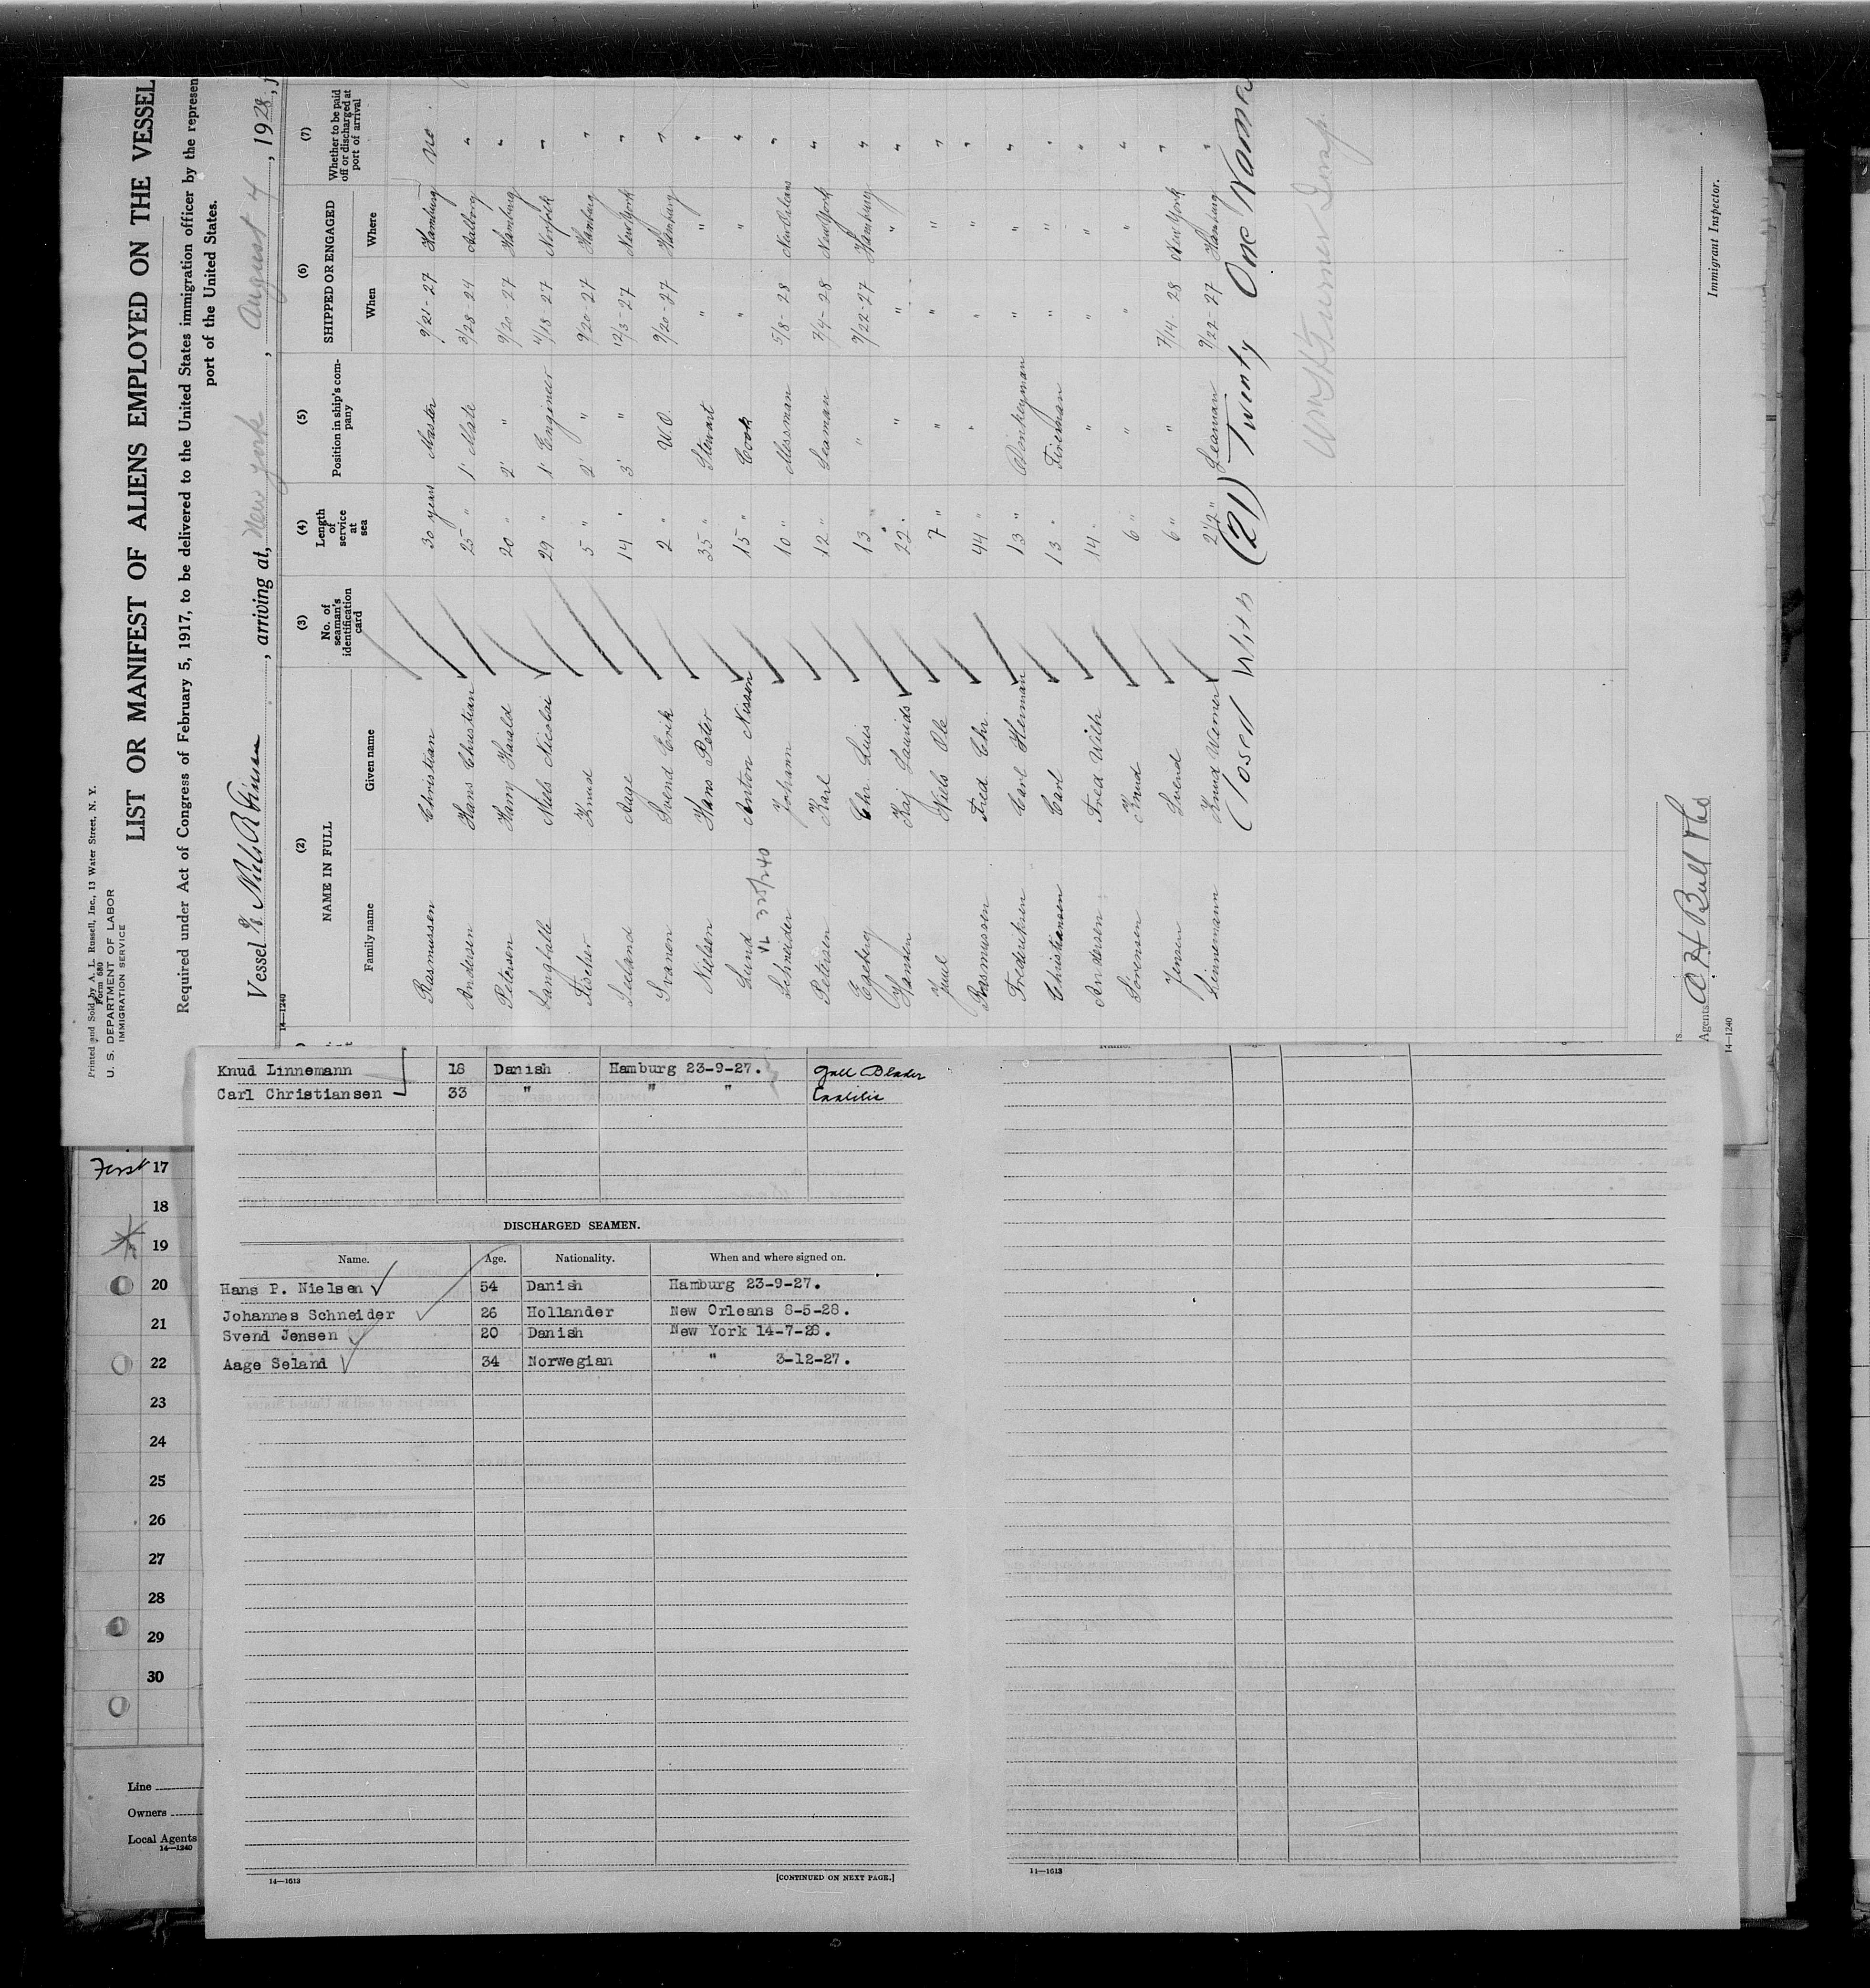 Printed and Sold by A. L. Russell, Inc., 13 Water Street, N. Y.
Form 680
U. S. DEPARTMENT OF LABOR
IMMIGRATION SERVICE
LIST OR MANIFEST OF ALIENS EMPLOYED ON THE VESSEL
Required under Act of Congress of February 5, 1917, to be delivered to the United States immigration officer by the represen
port of the United States.
Vessel Niels , arriving at, New York , August 4 , 1928,
14—1240
(2) (3) (4) (5) (6) (7)
NAME IN FULL No. of seaman's identification card Length of service at sea Position in ship's company SHIPPED OR ENGAGED Whether to be paid off or discharged at port of arrival
Family name Given name When Where
Rasmussen Christian 30 years Master 9/21-27 Hamburg no.
Andersen Hans Christian 25 " 1' Mate 3/28-24 Aalborg "
Petersen Harry Harald 20 " 2' " 9/20-27 Hamburg "
Langballe Niels Nicolai 29 " 1' Engineer 4/18-27 Norfolk "
Fischer Knud 5 " 2' " 9/20-27 Hamburg "
Seeland Aage 14 " 3' " 12/3-27 New York "
Svanen Svend Erik 2 " W.O. 9/20-27 Hamburg "
Nielsen Hans Peter 35 " Stewart " " "
Lund Anton Nissen 15 " Cook " " "
Schneider Johann 10 " Messman 5/8-28 New Orleans "
Petersen Karl 12 " Seaman 7/4-28 New York "
Egeberg Chr. Luis 13 " " 9/22-27 Hamburg "
Hansen Kaj Laurids 22 " " " " "
Juul Niels Ole 7 " " " " "
Rasmussen Fred. Chr. 44 " " " " "
Frederiksen Carl Herman 13 " Donkeyman " " "
Christiansen Carl 13 " Fireman " " "
Andersen Fred Wilh 14 " " " " "
Sorensen Knud 6 " " " " "
Jensen Svend 6 " " 7/14-28 New York "
Linnemann Knud Werner 2 1/2 " Seaman 9/22-27 Hamburg "
Closed With (21) Twenty One Names
Immigrant Inspector.
Agents A H Bull
14—1240
Knud Linnemann 18 Danish Hamburg 23-9-27.
Carl Christiansen 33 " " "
DISCHARGED SEAMEN.
Name. Age. Nationality. When and where signed on.
Hans P. Nielsen 54 Danish Hamburg 23-9-27.
Johannes Schneider 26 Hollander New Orleans 8-5-28.
Svend Jensen 20 Danish New York 14-7-28.
Aage Seland 34 Norwegian " 3-12-27.
14—1613
[CONTINUED ON NEXT PAGE.]
Name.
14—1613
First 17
18
19
20
21
22
23
24
25
26
27
28
29
30
Line
Owners
Local Agents
14—1240